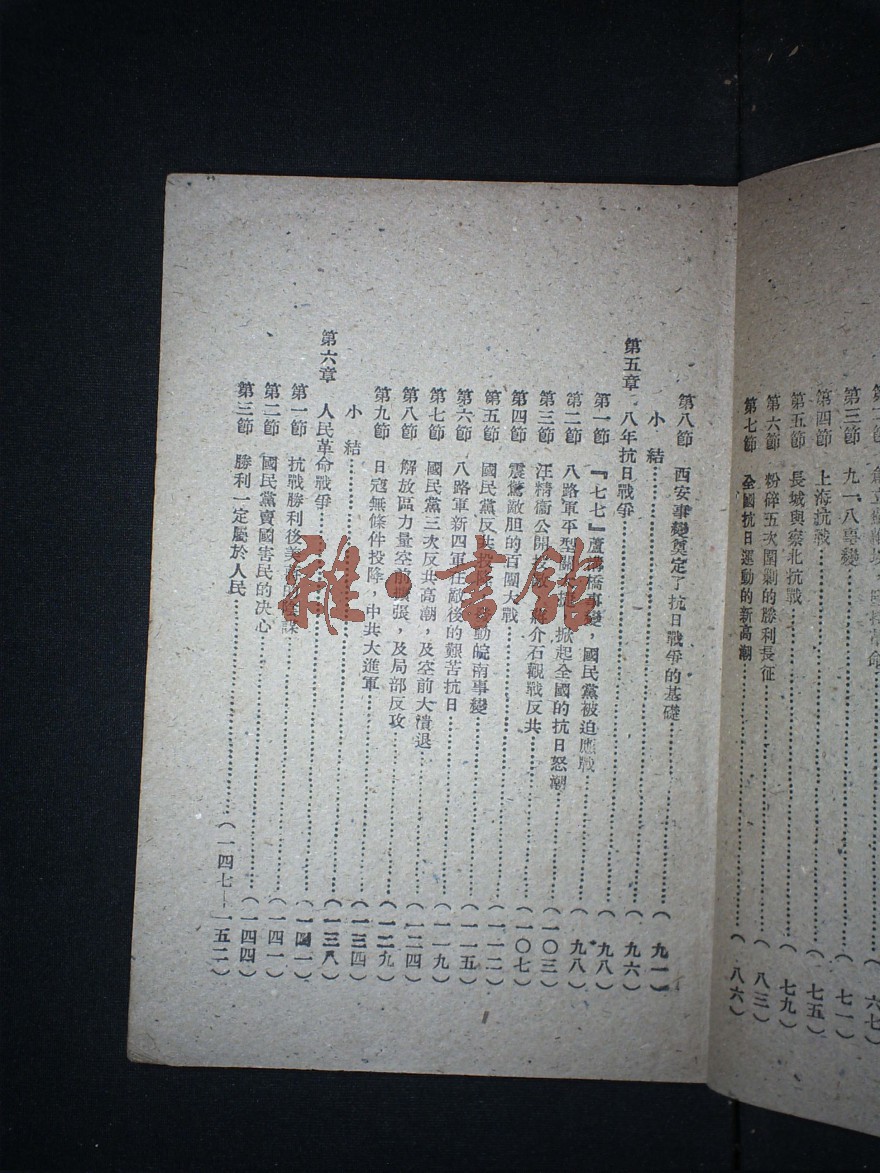 第三節 九一八事變……(七一)
第四節 上海抗戰……(七五)
第五節 長城與察北抗戰……(七九)
第六節 粉碎五次圍剿的勝利長征……(八三)
第七節 全國抗日運動的新高潮……(八六)
第八節 西安事變奠定了抗日戰爭的基礎……(九一)
小結……(九六)
第五章 八年抗日戰爭……(九八)
第一節 『七七』蘆溝橋事變,國民黨被迫應戰……(九八)
第二節 八路軍平型關大捷,掀起全國的抗日怒潮……(一〇三)
第三節 汪精衛公開投敵,蔣介石觀戰反共……(一〇七)
第四節 震驚敵胆的百團大戰……(一一二)
第五節 國民黨反共投降,發動皖南事變……(一一五)
第六節 八路軍新四軍在敵後的艱苦抗日……(一一九)
第七節 國民黨三次反共高潮,及空前大潰退……(一二四)
第八節 解放區力量空前擴張,及局部反攻……(一二九)
第九節 日寇無條件投降,中共大進軍……(一三四)
小結……(一三八)
第六章 人民革命戰爭……(一四一)
第一節 抗戰勝利後美蔣的陰謀……(一四一)
第二節 國民黨賣國害民的决心……(一四四)
第三節 勝利一定屬於人民……(一四七—一五二)
雜·書館